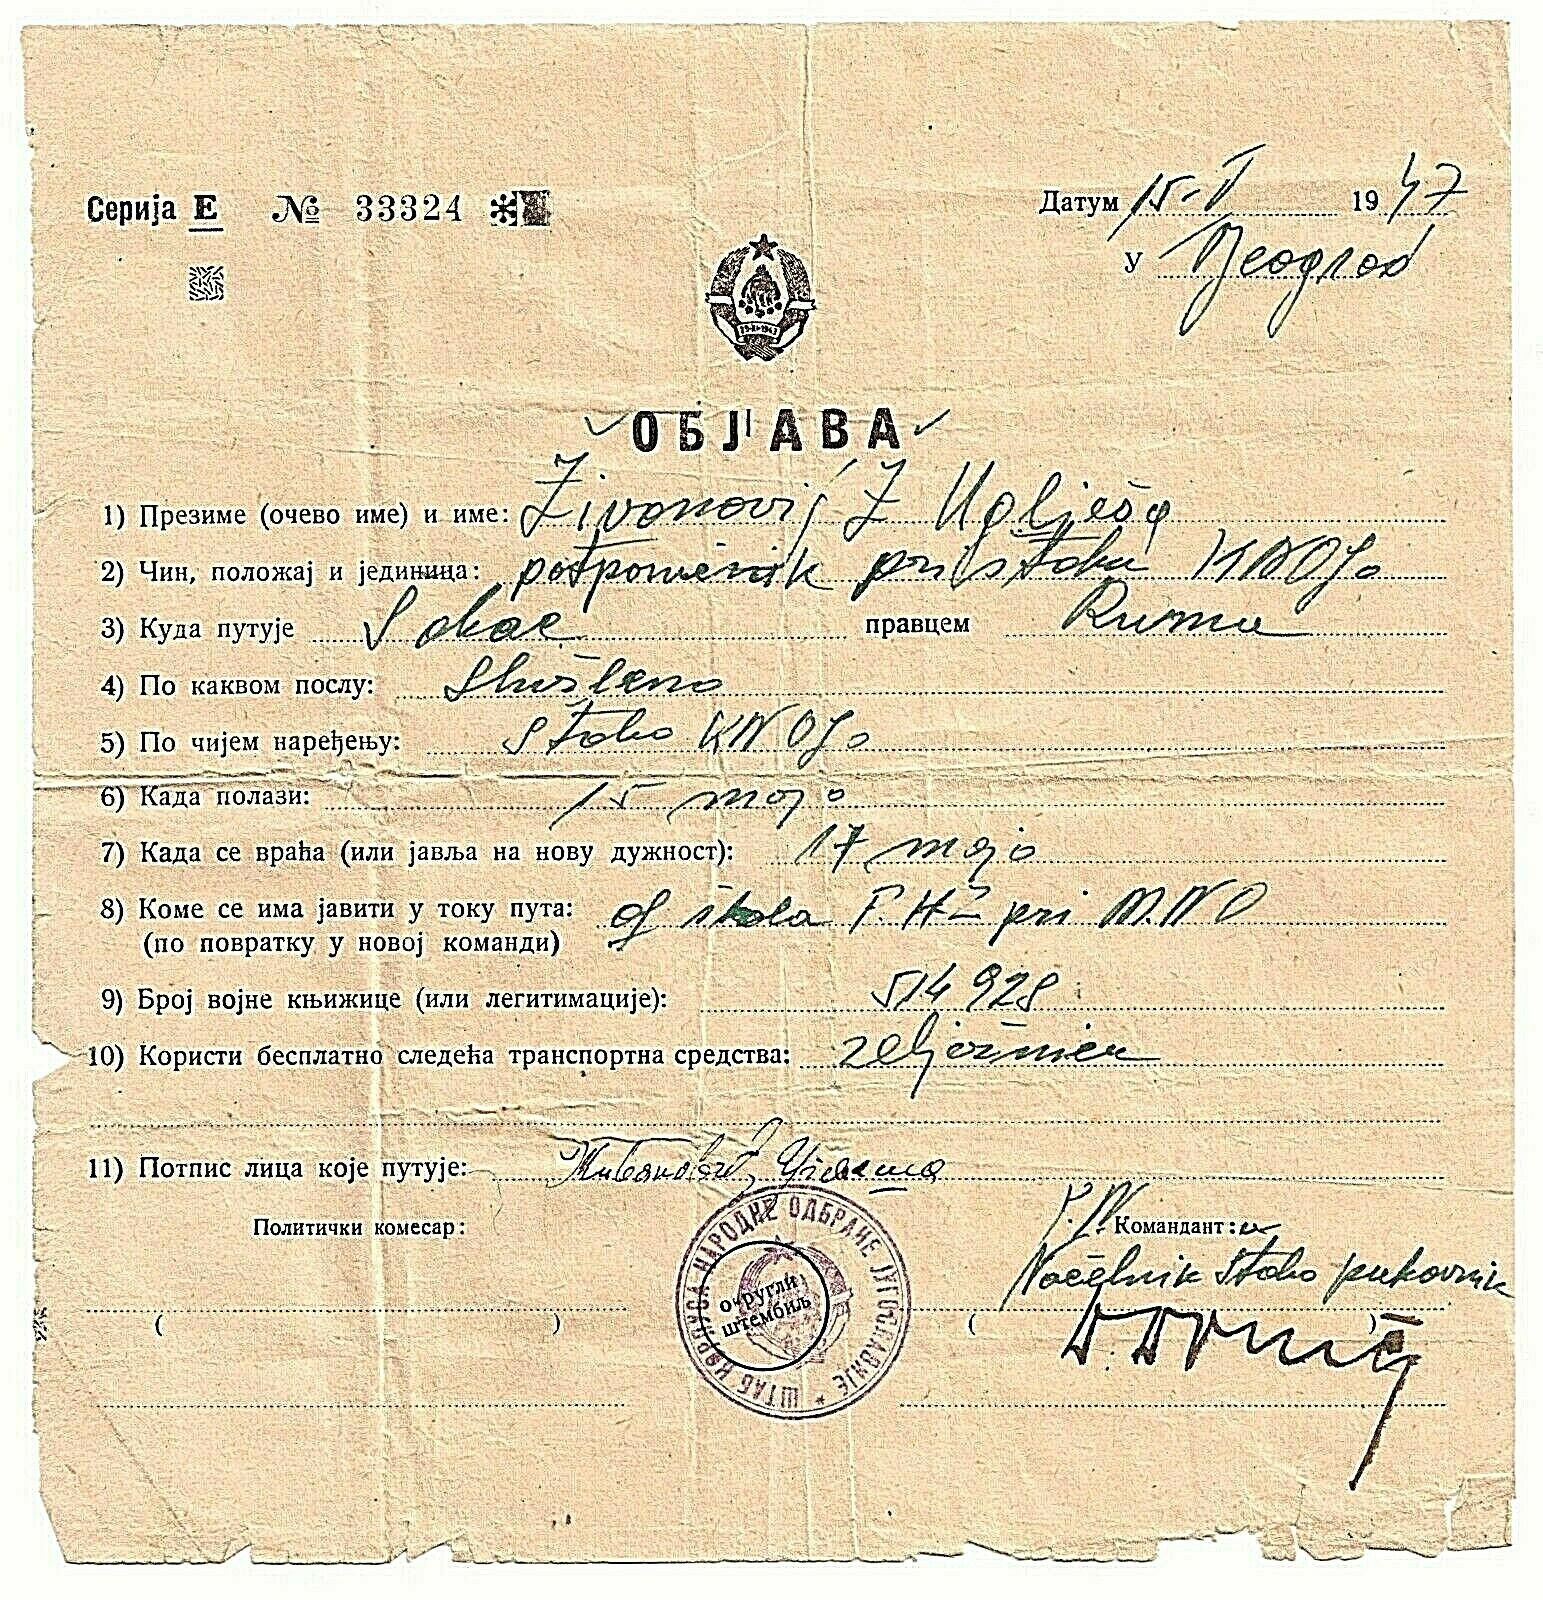 Серија Е № 33324 *
Датум 15-V 1947
У Beograd
29-XI-1943
ОБЈАВА
1) Презиме (очево име) и име: Živanović Ž Uglješa
2) Чин, положај и јединица: potporučnik pri štabu KNOJa
3) Куда путује правцем Ruma
4) По каквом послу: Službeno
5) По чијем наређењу: Štaba KNOJa
6) Када полази: 15 maja
7) Када се враћа (или јавља на нову дужност): 17 maja
8) Коме се има јавити у току пута: of škola pri M.NO
(по повратку у новој команди)
9) Број војне књижице (или легитимације): 514928
10) Користи бесплатно следећа транспортна средства: željeznicu
11) Потпис лица које путује: Живановић, Угљеша
Политички комесар: Командант:
Načelnik Štaba pukovnik
( ) ( )
ШТАБ КОРПУСА НАРОДНЕ ОДБРАНЕ ЈУГОСЛАВИЈЕ *
округли
штембиљ